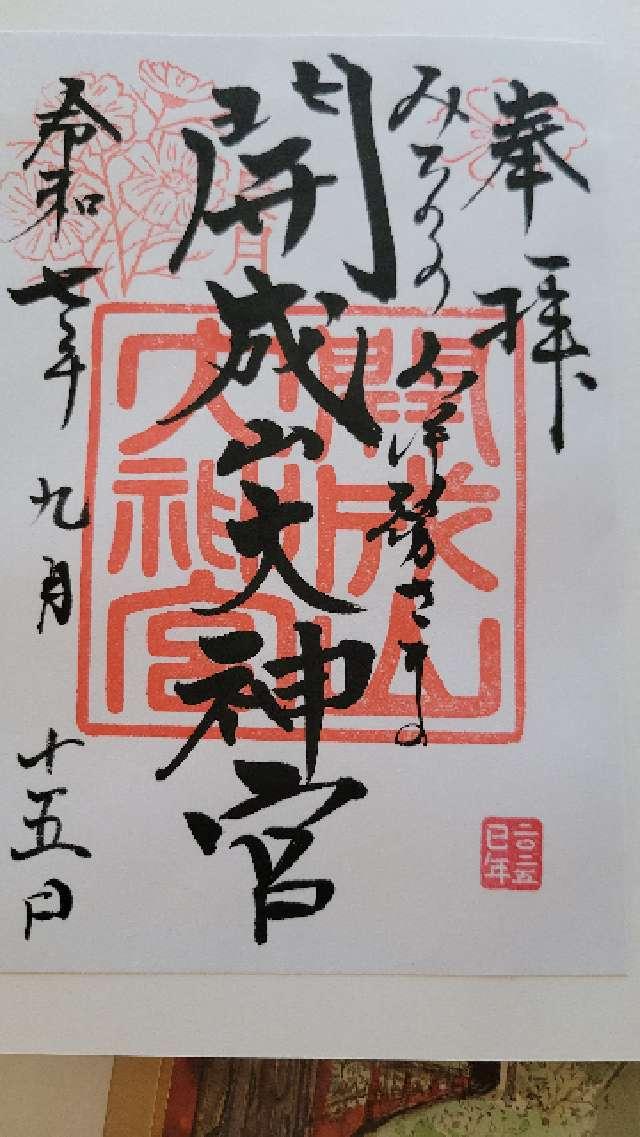 奉拝
みちのくの
開成山大神宮
令和七年九月十五日
開成山
大神宮
二〇二五
巳年